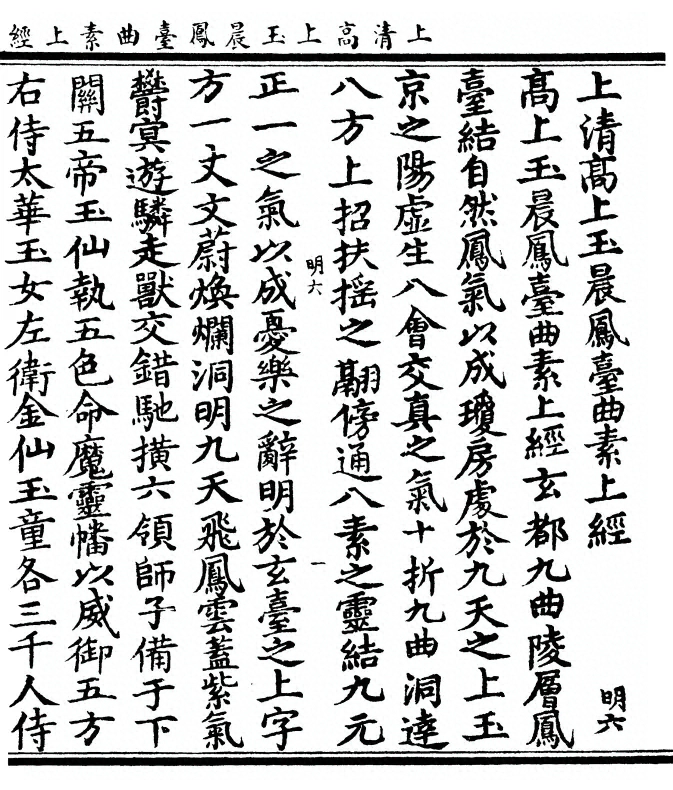 上清高上玉晨鳳臺曲素上經
上清髙上玉晨鳳臺曲素上經
明六
髙上玉晨鳳臺曲素上經玄都九曲陵層鳳
臺結自然鳳氣以成瓊房處於九天之上玉
京之陽虛生八會交真之氣十折九曲洞達
八方上招扶揺之翮傍通八素之靈結九元
明六
一
正一之氣以成憂樂之辭明於玄臺之上字
方一丈文蔚煥爛洞明九天飛鳳雲蓋紫氣
欝㝠遊驎走獸交錯馳擴六領師子備于下
關五帝玉仙執五色命魔靈幡以威御五方
右侍太華玉女左衛金仙玉童各三千人侍